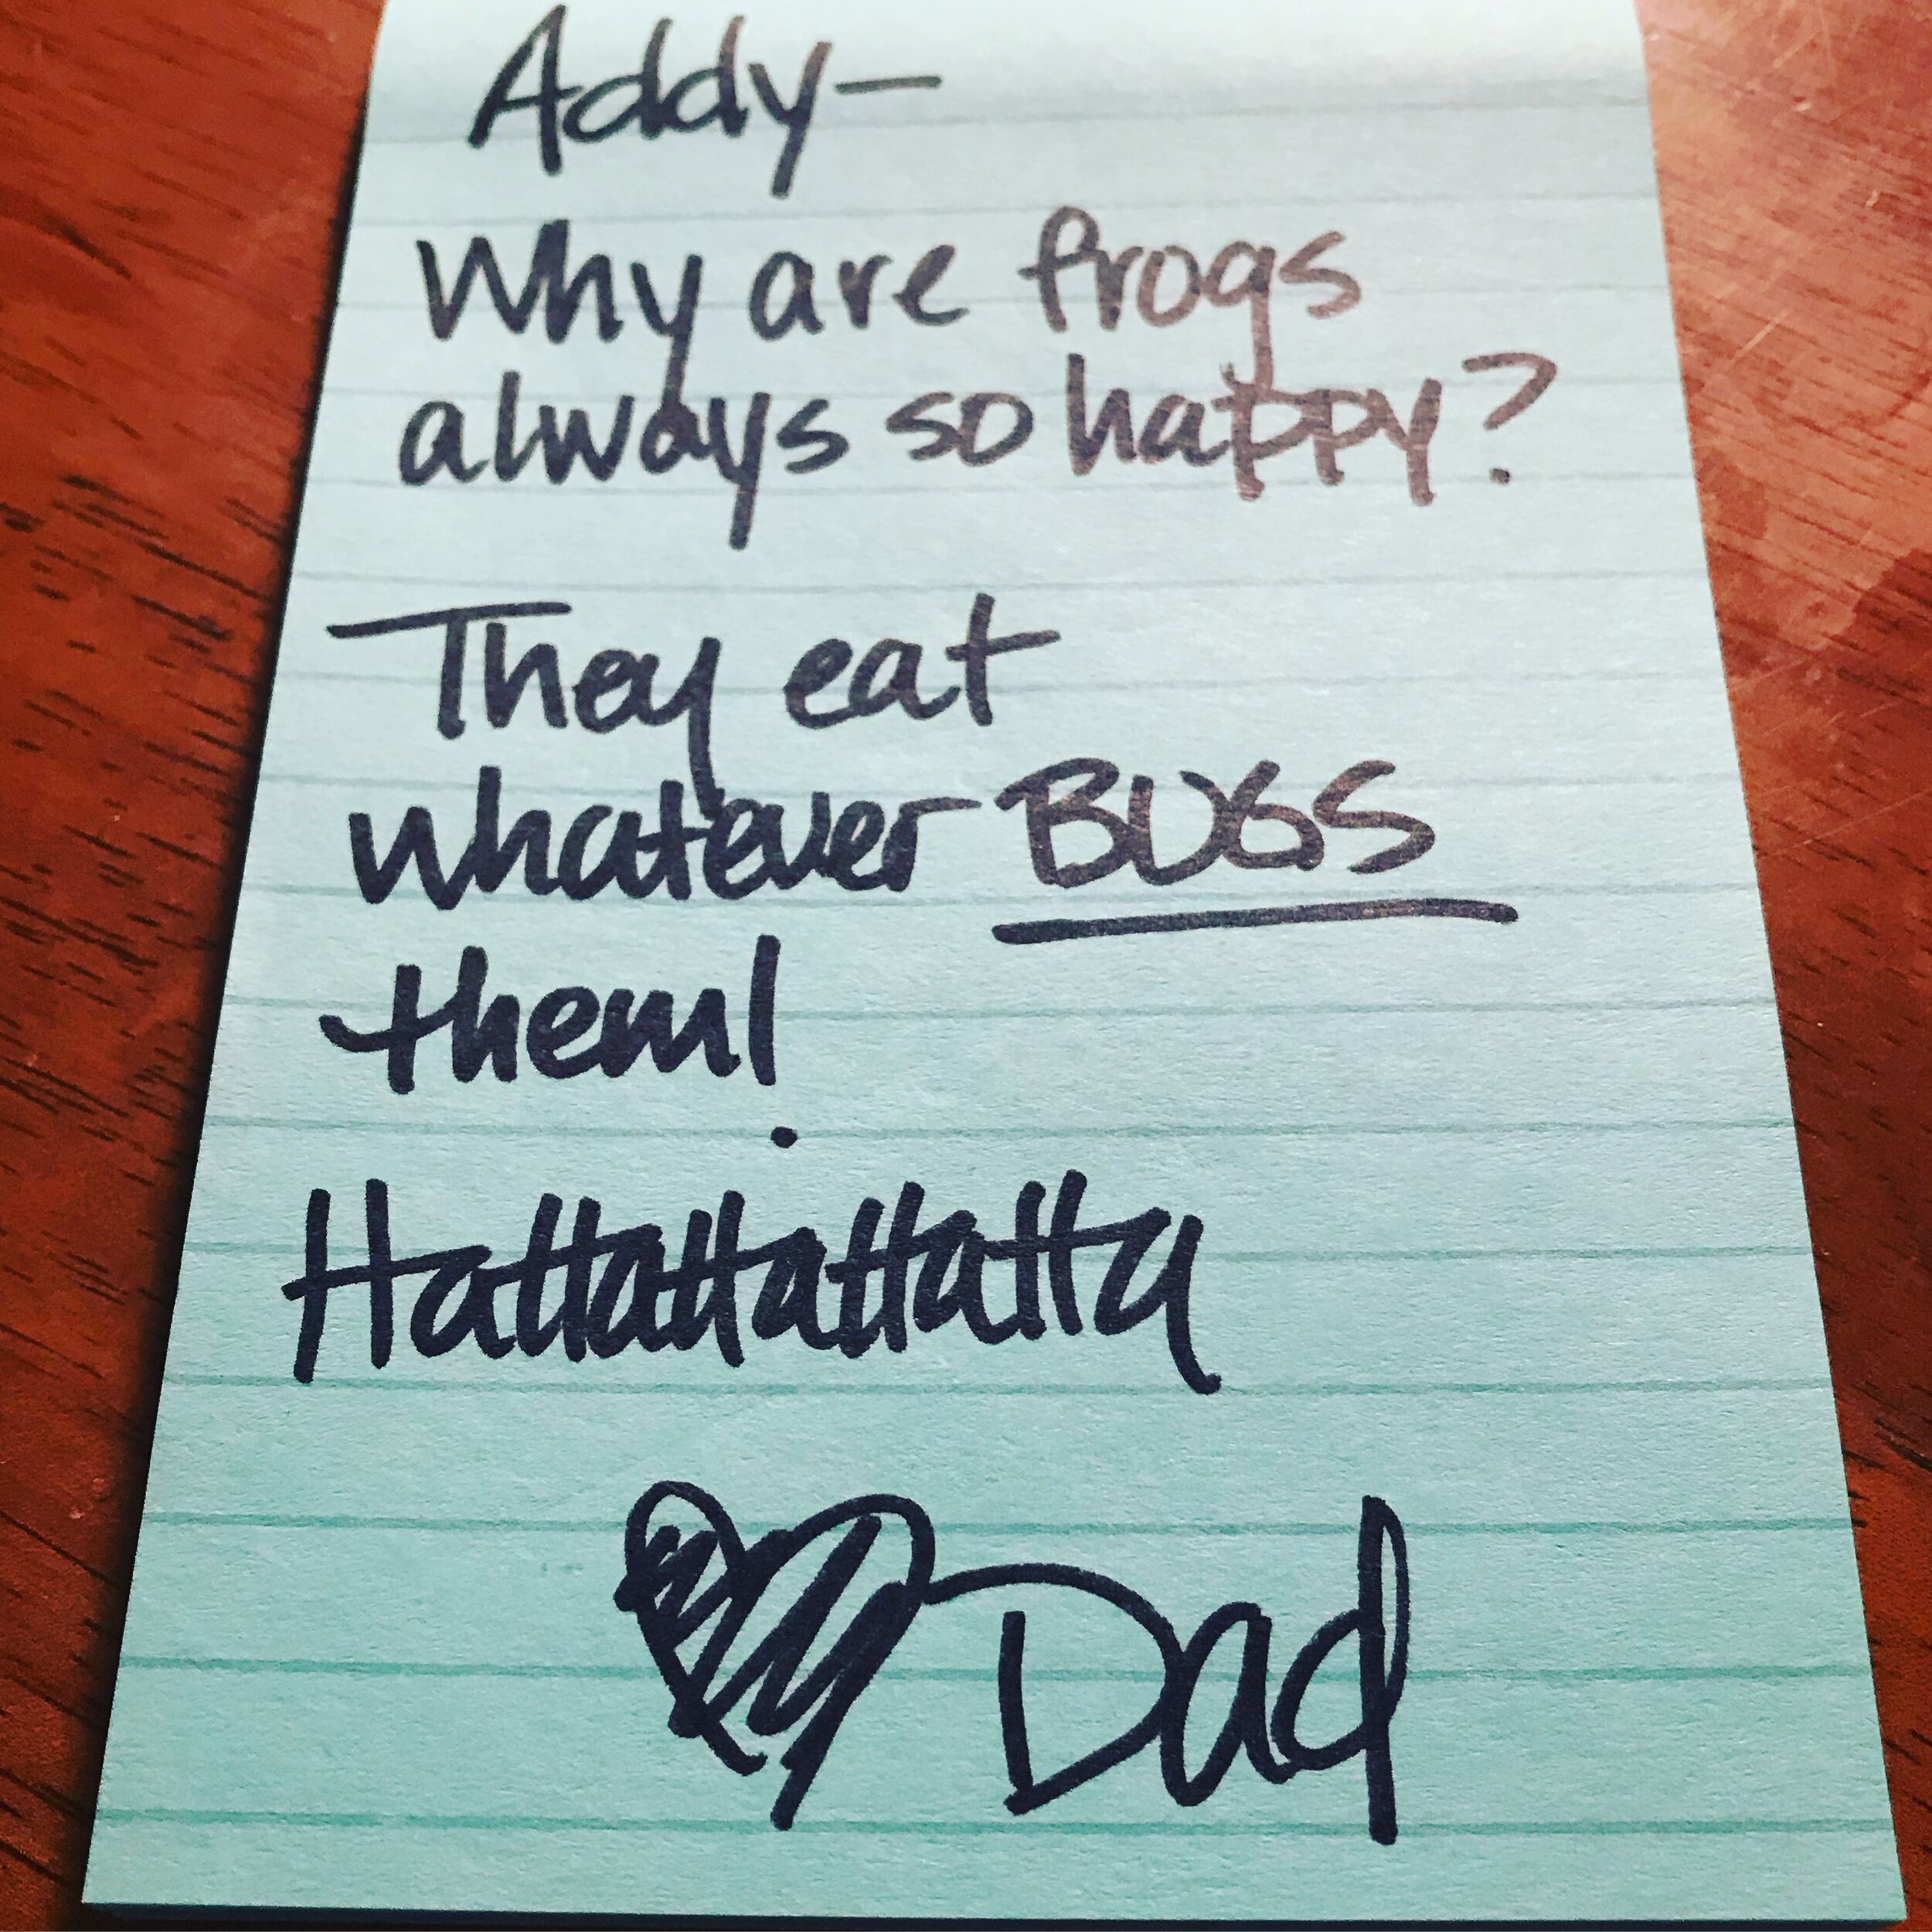 Addy—
Why are frogs
always so happy?
They eat
whatever BUGS
them!
HaHaHaHaHaHa
Dad